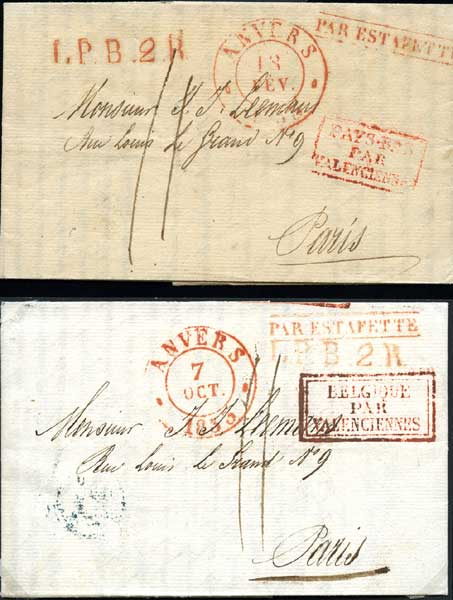 L.P.B.2.R
ANVERS
18
FÉV.
PAR ESTAFETTE
Monsieur
Rue Louis Le Grand N° 9
PAYS-BAS
PAR
VALENCIENNES
11
Paris
ANVERS
7
OCT.
1833
PAR ESTAFETTE
L.P.B.2.R
BELGIQUE
PAR
VALENCIENNES
Monsieur
Rue Louis Le Grand N° 9
11
Paris